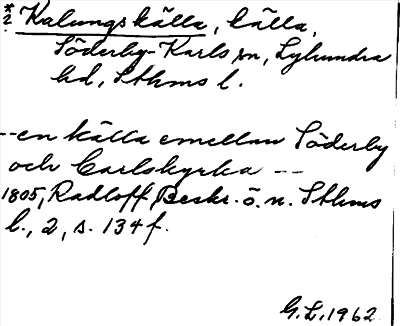 *? Kalungskälla, källa,
Söderby-Karls sn, Lyhundra
hd, Sthms l.
--en källa emellan Söderby
och Carlskyrka --
1805, Radloff, Beskr. ö. n. Sthms
l., 2, s. 134 f.
G.L. 1962